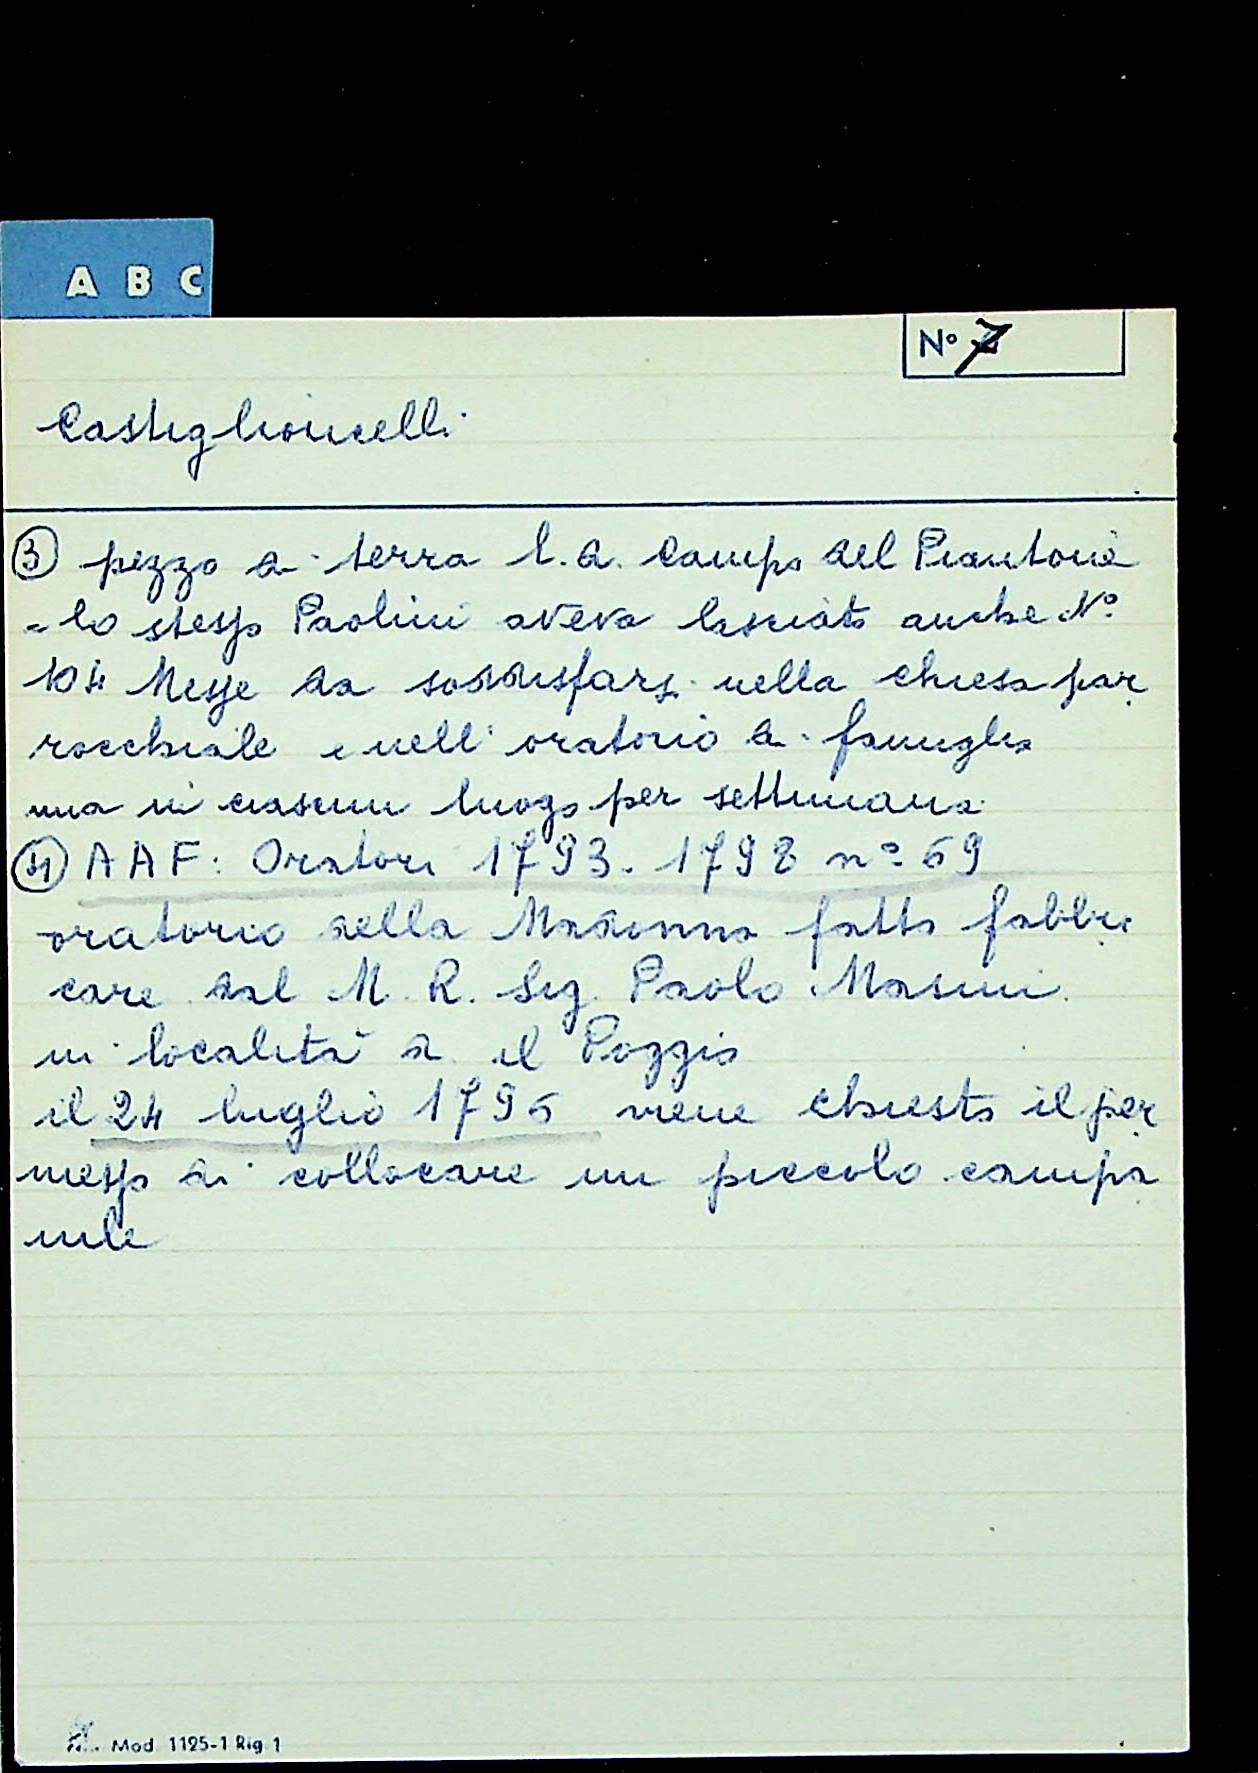 A B C
N° 7
Castiglioncelli
③ pezzo di terra l. d. Campo del Piantone
- lo stesso Paolini aveva lasciato anche N°
104 Messe da soddisfarsi nella chiesa par
rocchiale e nell' oratorio di famiglia
una in ciascun luogo per settimana
④ AAF: Oratori 1793-1798 n° 69
oratorio della Madonna fatto fabbri
care dal M. R. Sig. Paolo Masini
in località d. il Poggio
il 24 luglio 1796 viene chiesto il per
messo di collocare un piccolo campa
nile
Mod. 1125-1 Rig. 1